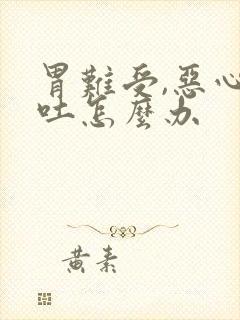 胃難受,惡心
吐怎麼办
黄素